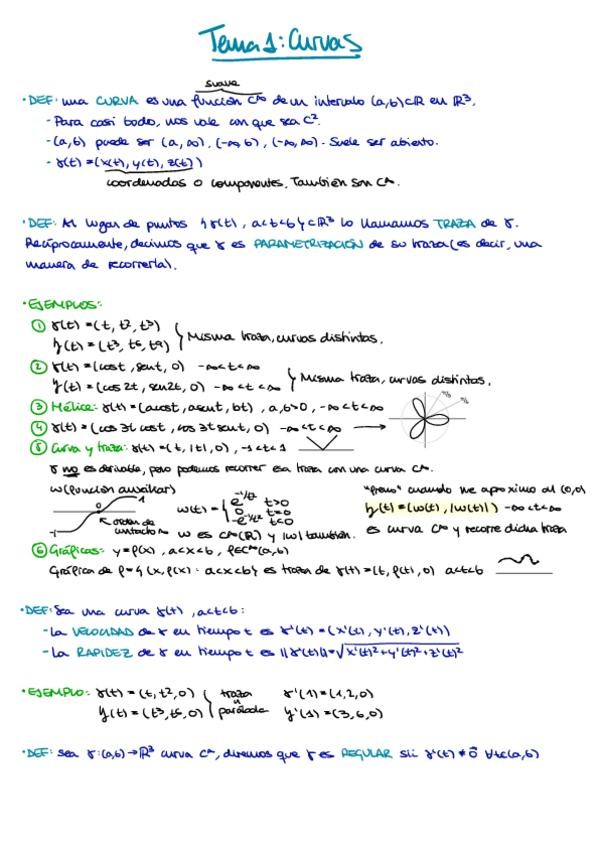 Tema 1: Curvas
suave
· DEF: una CURVA es una función C^∞ de un intervalo (a,b)⊂ℝ en ℝ³.
- Para casi todo, nos vale con que sea C².
- (a,b) puede ser (a,∞), (-∞,b), (-∞,∞). Suele ser abierto.
- γ(t)=(x(t), y(t), z(t))
coordenadas o componentes. También son C^∞.
· DEF: Al lugar de puntos {γ(t), a<t<b}⊂ℝ³ lo llamamos TRAZA de γ.
Recíprocamente, decimos que γ es PARAMETRIZACIÓN de su traza (es decir, una
manera de recorrerla).
· EJEMPLOS:
① γ(t)=(t, t², t³)
η(t)=(t³, t⁶, t⁹) } Misma traza, curvas distintas.
② γ(t)=(cost, sent, 0) -∞<t<∞
η(t)=(cos2t, sen2t, 0) -∞<t<∞ } Misma traza, curvas distintas.
③ Hélice: γ(t)=(acost, asent, bt), a,b>0, -∞<t<∞
④ γ(t)=(cos3t cost, cos3t sent, 0) -∞<t<∞ →
⑤ Curva y traza: γ(t)=(t, |t|, 0), -1<t<1
γ no es derivable, pero podemos recorrer esa traza con una curva C^∞.
w (función auxiliar)
1
0
-1
orden de
contacto ∞
w(t)= { e^(-1/t²) t>0
0 t=0
-e^(-1/t²) t<0
w es C^∞(ℝ) y |w| también.
"freno" cuando me aproximo al (0,0)
η(t)=(w(t), |w(t)|) -∞<t<∞
es curva C^∞ y recorre dicha traza
⑥ Gráficas: y=f(x), a<x<b, f∈C^∞(a,b)
Gráfica de f={x, f(x): a<x<b} es traza de γ(t)=(t, f(t), 0) a<t<b
· DEF: Sea una curva γ(t), a<t<b:
- La VELOCIDAD de γ en tiempo t es γ'(t)=(x'(t), y'(t), z'(t))
- La RAPIDEZ de γ en tiempo t es ||γ'(t)||=√x'(t)²+y'(t)²+z'(t)²
· EJEMPLO: γ(t)=(t, t², 0) } traza γ'(1)=(1,2,0)
η(t)=(t³, t⁶, 0) parábola η'(1)=(3,6,0)
· DEF: sea γ:(a,b)→ℝ³ curva C^∞, diremos que γ es REGULAR sii γ'(t)≠0⃗ ∀t∈(a,b)